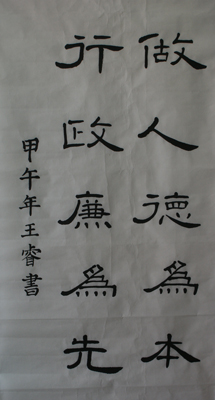 做人德為本
行政廉為先
甲午年王睿書